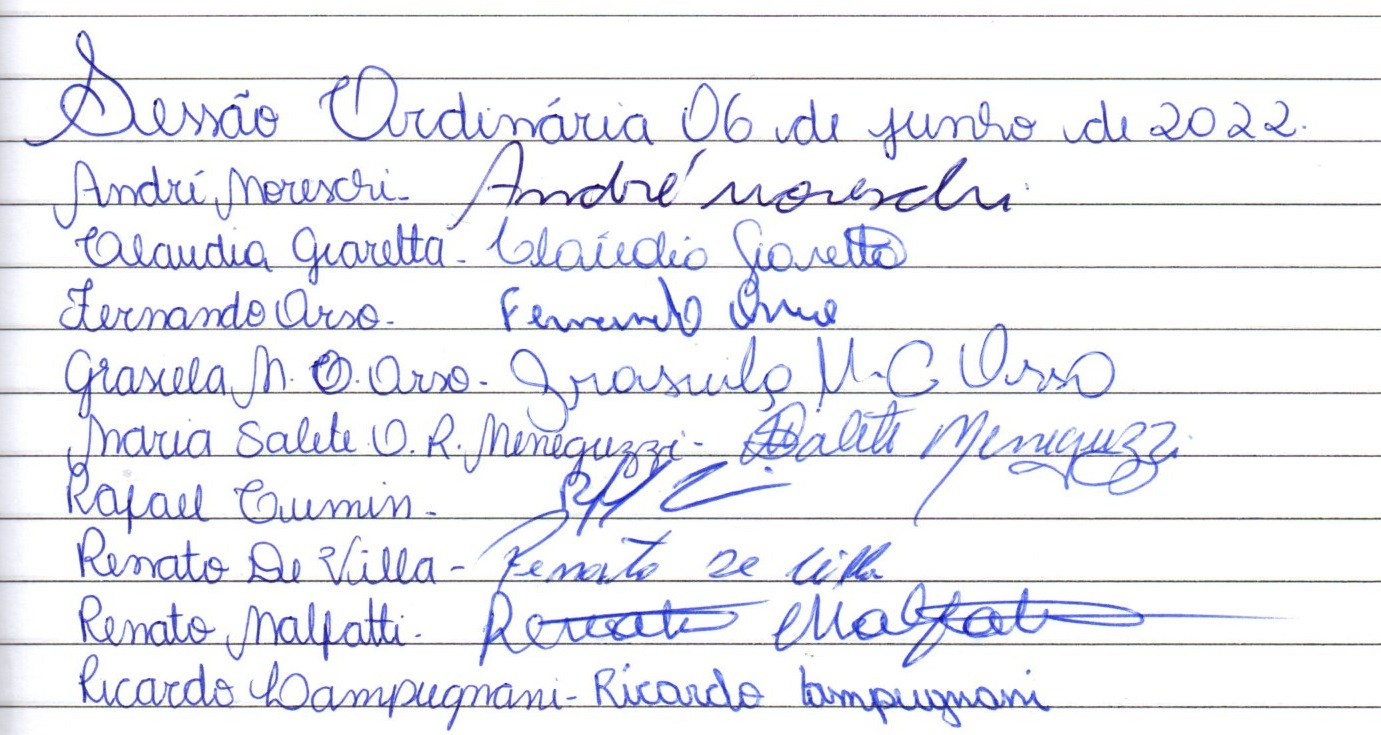 Sessão Ordinária 06 de junho de 2022.
André Moreschi - André Moreschi
Claudia Giaretta - Claúdia Giaretta
Fernando Orso - Fernando Orso
Grasiela M. C. Orso - Grasiela M. C Orso
Maria Salete O. R. Meneguzzi - Salete Meneguzzi
Rafael Cumin -
Renato De Villa - Renato De Villa
Renato Malfatti - Renato Malfatti
Ricardo Lampugnani - Ricardo Lampugnani